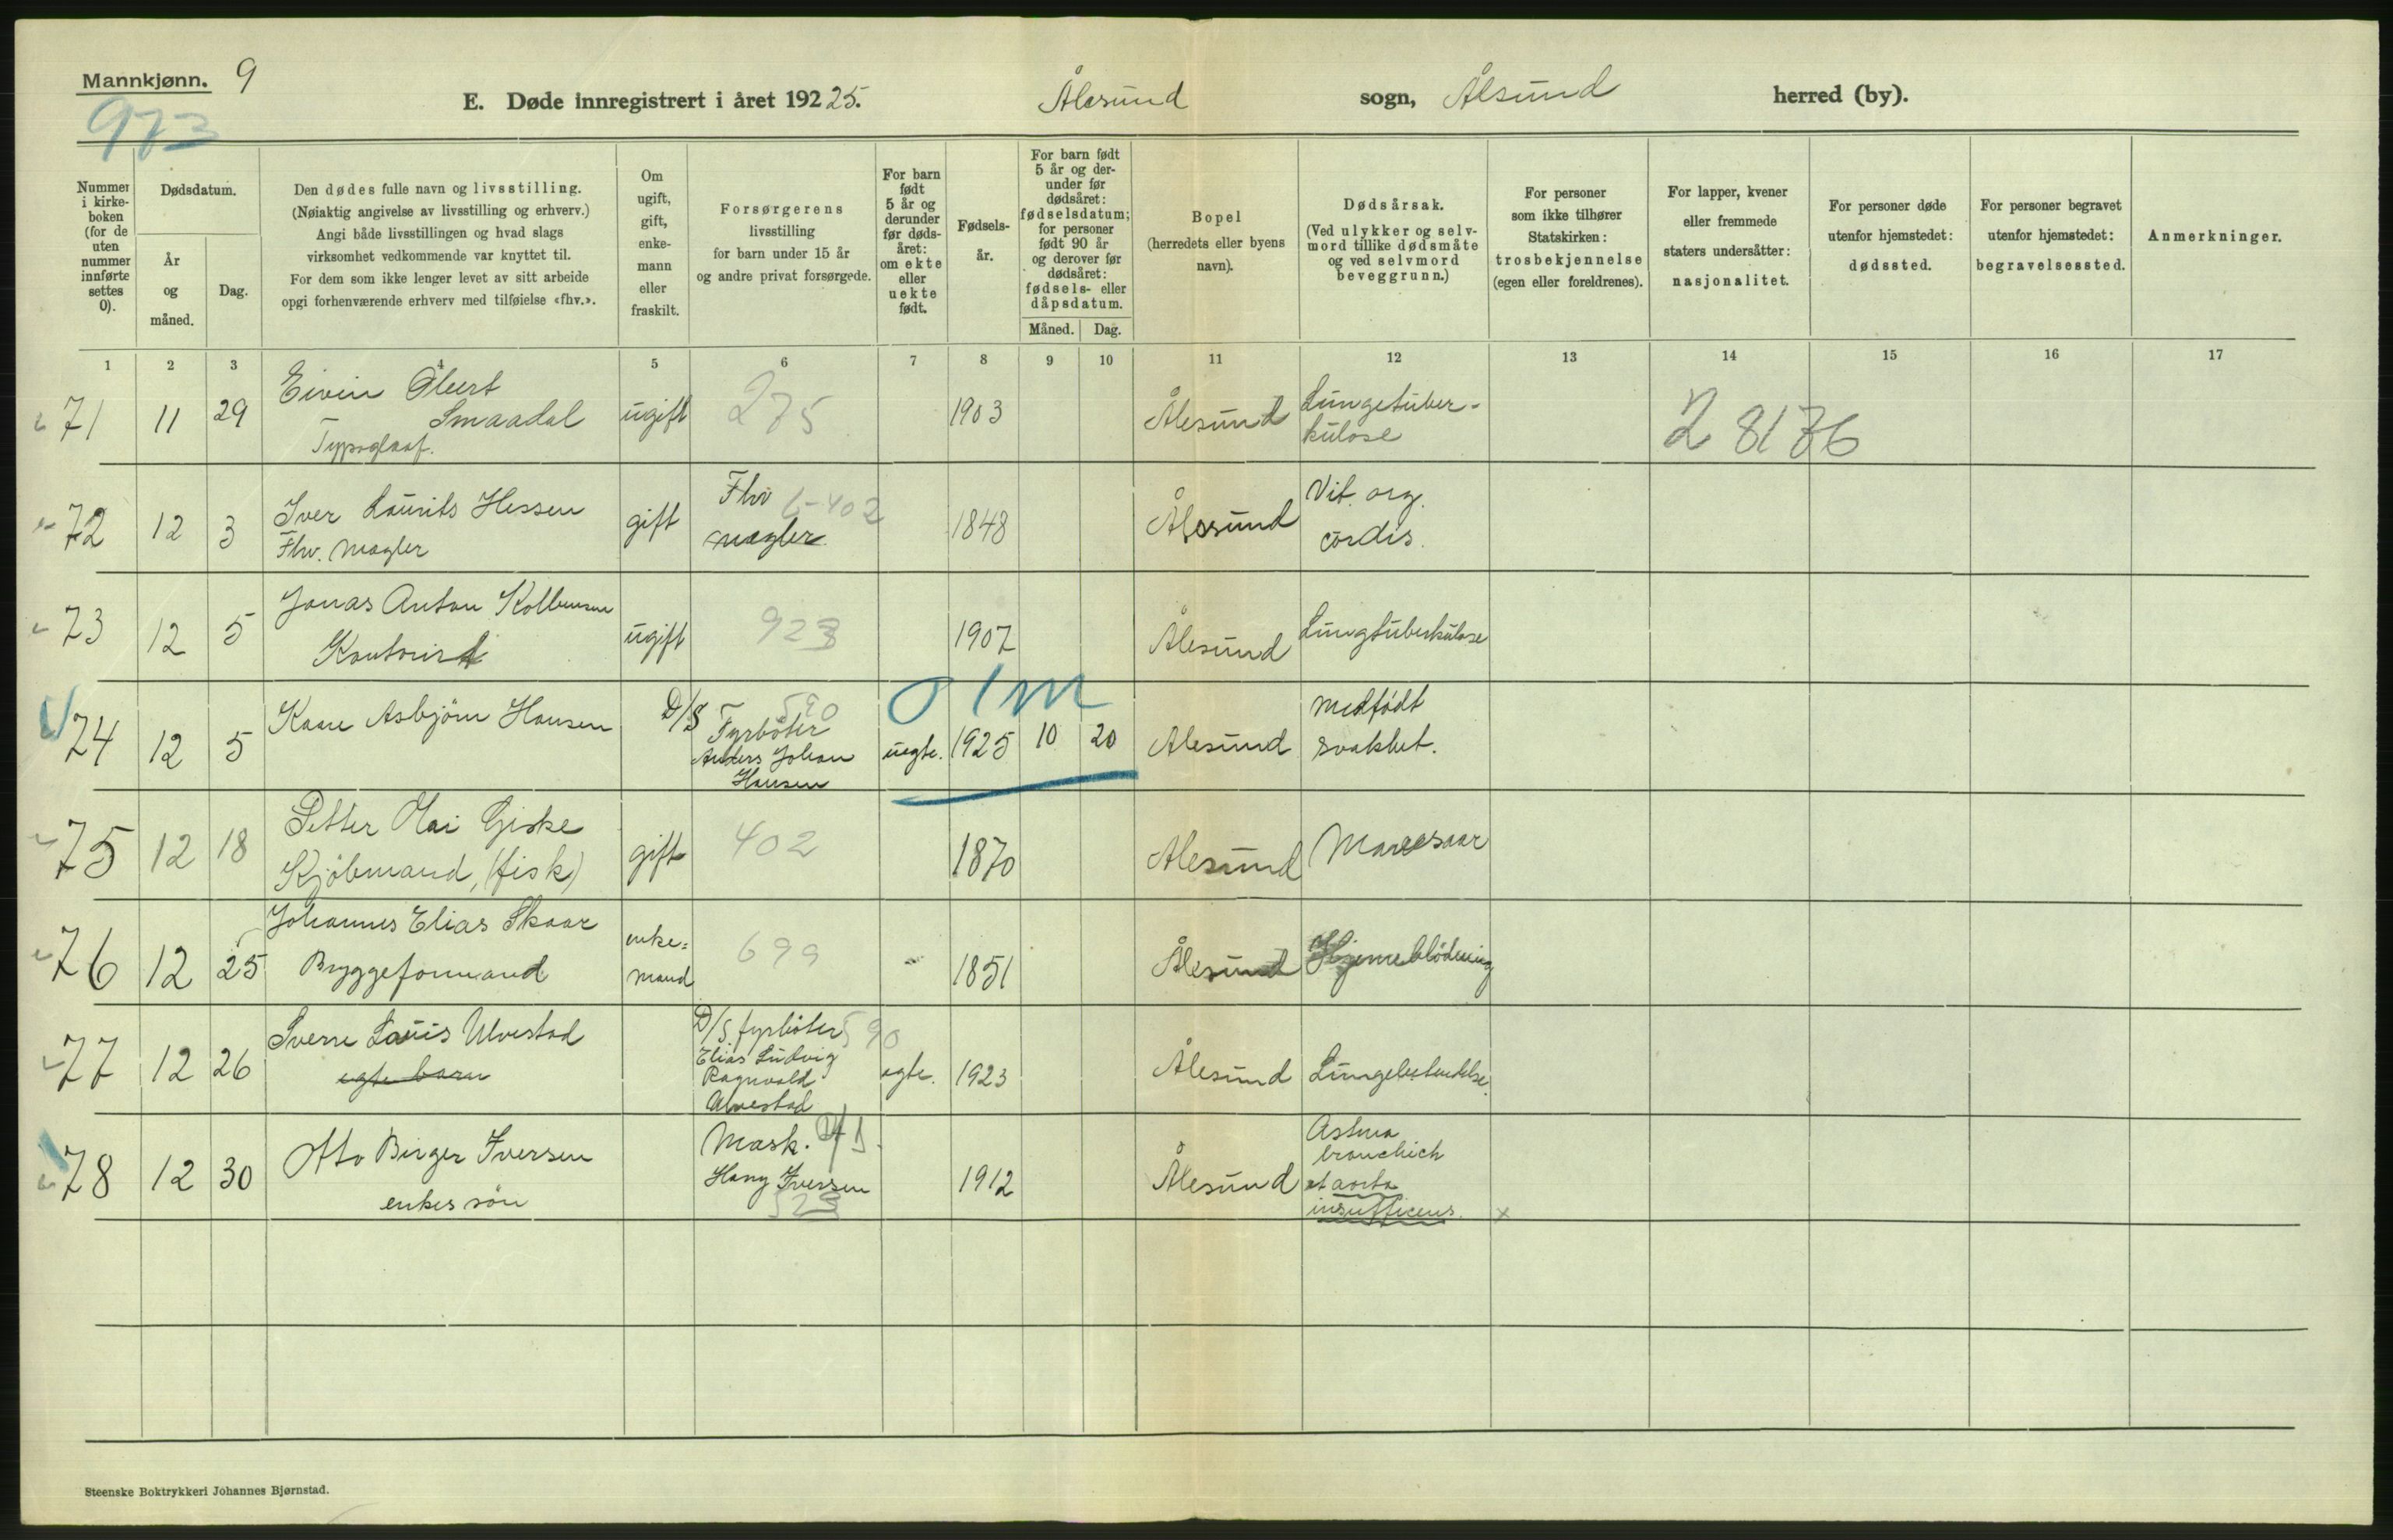 Mannkjønn. 9
973
E. Døde innregistrert i året 19225. Ålesund sogn, Ålsund herred (by).
Nummer i kirke- boken (for de uten nummer innførte settes 0).
Dødsdatum.
År og måned.
Dag.
Den dødes fulle navn og livsstilling.
(Nøiaktig angivelse av livsstilling og erhverv.)
Angi både livsstillingen og hvad slags
virksomhet vedkommende var knyttet til.
For dem som ikke lenger levet av sitt arbeide
opgi forhenværende erhverv med tilføielse «fhv.».
Om ugift, gift, enke- mann eller fraskilt.
Forsørgerens
livsstilling
for barn under 15 år
og andre privat forsørgede.
For barn født 5 år og derunder før døds- året: om ekte eller uekte født.
Fødsels- år.
For barn født 5 år og der- under før dødsåret: fødselsdatum; for personer født 90 år og derover før dødsåret: fødsels- eller dåpsdatum.
Måned. Dag.
Bopel
(herredets eller byens
navn).
Dødsårsak.
(Ved ulykker og selv-
mord tillike dødsmåte
og ved selvmord
beveggrunn.)
For personer
som ikke tilhører
Statskirken:
trosbekjennelse
(egen eller foreldrenes).
For lapper, kvener
eller fremmede
staters undersåtter:
nasjonalitet.
For personer døde
utenfor hjemstedet:
dødssted.
For personer begravet
utenfor hjemstedet:
begravelsessted.
Anmerkninger.
1 2 3 4 5 6 7 8 9 10 11 12 13 14 15 16 17
71 11 29 Eivin Olbert
Smaadal
Typograf. ugift 275 1903 Ålesund Lungetuber-
kulose 28176
72 12 3 Iver Laurits Hessen
Fhv. Mægler gift Fhv 6-402
mægler. 1848 Ålesund Vit. org.
cordis.
73 12 5 Jonas Anton Kolbensen
Kontorist ugift 923 1907 Ålesund Lungtuberkulose
74 12 5 Kaare Asbjörn Hansen D/S 590
Fyrböter
Anders Johan
Hansen uegte. 1925 10 20 Alesund medfödt
svakhet.
0 1 m
75 12 18 Petter Olai Giske
Kjöbmand, (fisk) gift 402 1870 Alesund Mavesaar
76 12 25 Johannes Elias Skaar
Bryggeformand enke=
mand 699 1851 Ålesund Hjerneblödning
77 12 26 Sverre Louis Ulvestad
egte barn D/S. fyrböter 590
Elias Ludvig
Ragnvald
Ulvestad egte. 1923 Ålesund Lungebetendelse.
78 12 30 Otto Birger Iversen
enkes sön Mask. D/S.
Hany Iversen
523 1912 Ålesund Astma
bronchich
et aorta
insufficens. x
Steenske Boktrykkeri Johannes Bjørnstad.